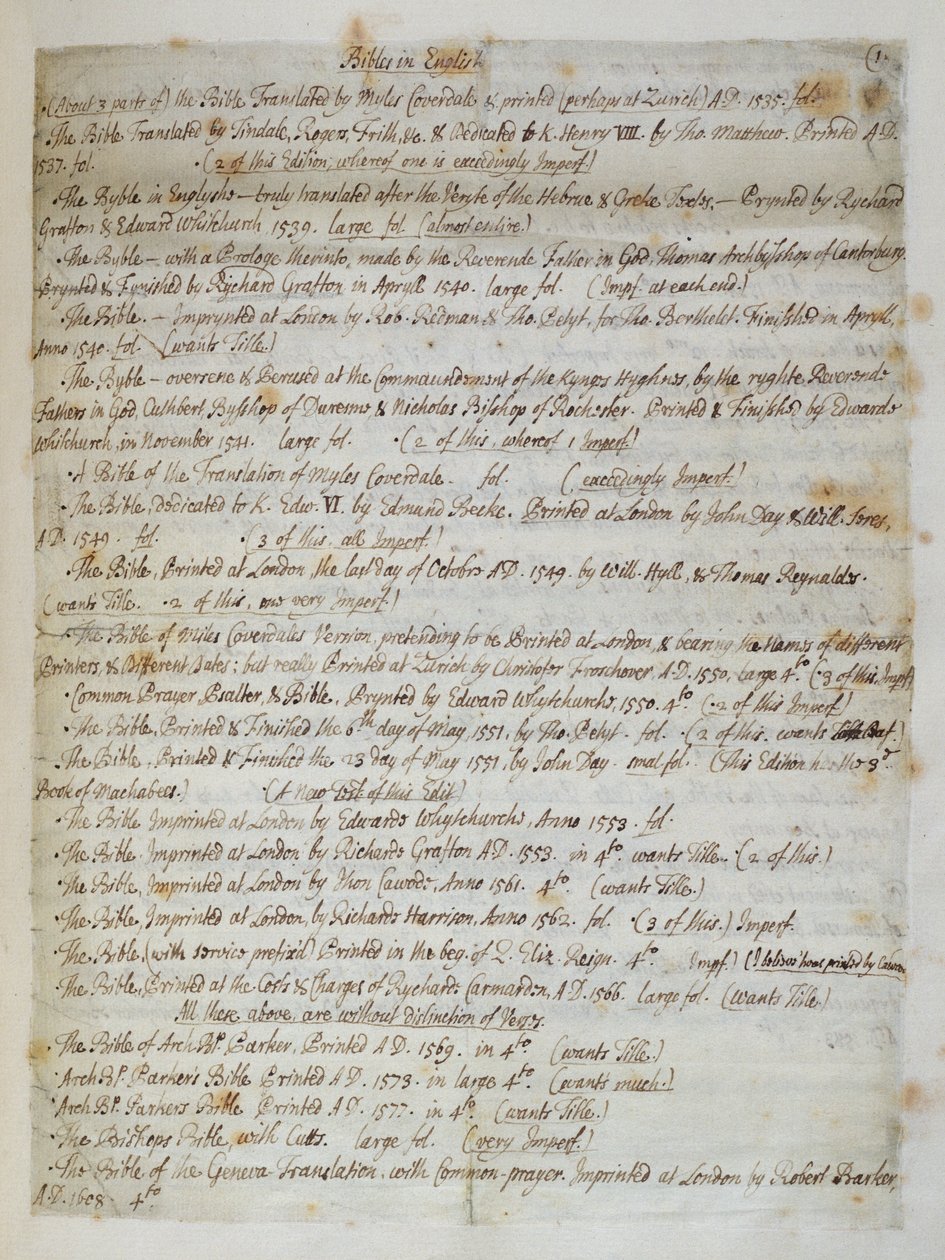 Bibles in English
(1.
·(About 3 parts of) the Bible Translated by Myles Coverdale & printed (perhaps at Zurich) A.D. 1535. fol.
·The Bible Translated by Tindale, Rogers, Frith, &c. & Dedicated to K. Henry VIII. by Tho. Matthew. Printed A.D.
1537. fol. ·(2 of this Edition, whereof one is exceedingly Imperf.)
·The Byble in Englyshe — truly translated after the Veryte of the Hebrue & Greke Textes. — Prynted by Rychard
Grafton & Edward Whitchurch, 1539. large fol. (almost entire.)
·The Byble — with a Prologe therinto, made by the Reverende Father in God, Thomas Archbysshop of Cantorbury.
Prynted & Fynished by Rychard Grafton in Apryll 1540. large fol. (Impf. at each end.)
·The Bible. — Imprynted at London by Rob. Redman & Tho. Petyt, for Tho. Berthelet. Finisshed in Apryll,
Anno 1540. fol. (wants Title.)
·The Byble — oversene & Perused at the Commaundement of the Kynges Hyghnes, by the ryghte Reverende
Fathers in God, Cuthbert, Bysshop of Duresme & Nicholas Bisshop of Rochester. Printed & Finisshed by Edwarde
Whitchurch, in November 1541. large fol. ·(2 of this, whereof 1 Imperf.)
·A Bible of the Translation of Myles Coverdale. fol. (exceedingly Imperf.)
·The Bible, dedicated to K. Edw. VI. by Edmund Becke. Printed at London by John Day & Will. Seres,
A.D. 1549. fol. ·(3 of this, all Imperf.)
·The Bible, Printed at London, the last day of Octobre A.D. 1549. by Will. Hyll, & Thomas Reynaldes.
(wants Title. ·2 of this, one very Imperf.)
·The Bible of Miles Coverdales Version, pretending to be Printed at London, & bearing the Names of different
Printers, & Different Dates: but really Printed at Zurich by Christofer Froschover, A.D. 1550, large 4.to (·3 of this, Impf)
·Common Prayer, Psalter, & Bible, Prynted by Edward Whytchurche, 1550. 4.to (·2 of this Imperf.)
·The Bible, Printed & Finished the 6th day of May, 1551, by Tho. Petyt. fol. ·(2 of this. wants
·The Bible, Printed & Finished the 23 day of May 1551, by John Day. smal fol. (This Edition has the 3d
Book of Machabees.) (A New Test. of this Edit.)
·The Bible Imprinted at London by Edwarde Whytchurche, Anno 1553. fol.
·The Bible Imprinted at London by Richarde Grafton A.D. 1553. in 4to. wants Title. ·(2 of this.)
·The Bible, Imprinted at London by Jhon Cawode, Anno 1561. 4to. (wants Title.)
·The Bible, Imprinted at London, by Richarde Harrison, Anno 1562. fol. ·(3 of this.) Imperf.
·The Bible, (with service prefix'd) Printed in the beg. of Q. Eliz. Reign. 4to Impf.) (I believe 'twas printed by Cawode
·The Bible, Printed at the Costs & Charges of Rycharde Carmarden, A.D. 1566. large fol. (wants Title.)
All these above, are without distinction of Verses.
·The Bible of Arch Bp. Parker, Printed A.D. 1569. in 4to. (wants Title.)
·Arch Bp. Parker's Bible Printed A.D. 1573. in large 4to. (wants much.)
·Arch Bp. Parkers Bible Printed A.D. 1577. in 4to. (wants Title.)
·The Bishops Bible, with Cutts. large fol. (very Imperf.)
·The Bible of the Geneva-Translation, with Common-prayer. Imprinted at London by Robert Barker,
A.D. 1608 4to